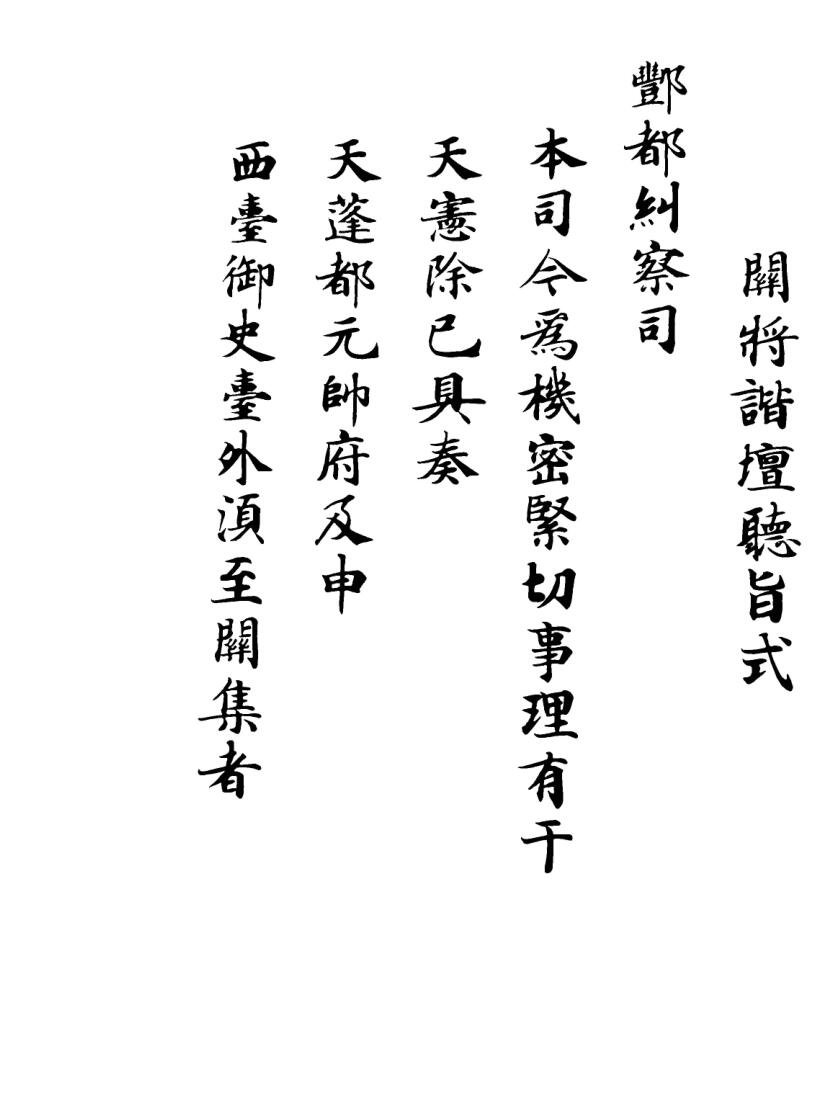 關將諧壇聽旨式
酆都糾察司
本司今為機密緊切事理有干
天憲除已具奏
天蓬都元帥府及申
西臺御史臺外湏至關集者